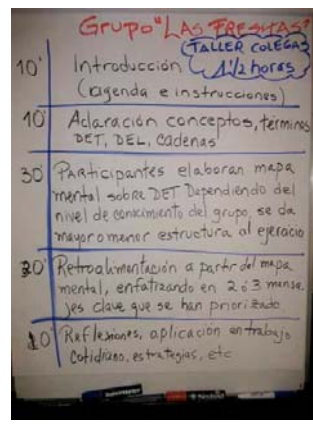 Grupo "LAS FRESITAS"
(TALLER COLEGAS
1 1/2 horas
10' Introducción
(agenda e instrucciones)
10' Aclaración conceptos, términos
DET, DEL, cadenas
30' PARticipantes elaboran mapa
mental sobre DET Dependiendo del
nivel de conocimiento del grupo, se da
mayor o menor estructura al ejercicio
20' Retroalimentación a partir del mapa
mental, enfatizando en 2 ó 3 mensa
jes clave que se han priorizado
10' Reflexiones, aplicación en trabajo
cotidiano, estrategias, etc